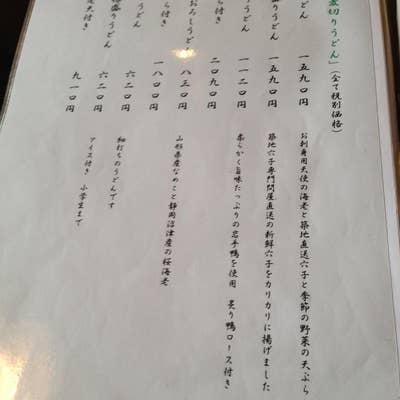 切りうどん」(全て税別価格)
どん 一五九〇円 お刺身用天使の海老と築地直送穴子と季節の野菜の天ぷら
うどん 一五九〇円 築地穴子専門問屋直送の新鮮穴子をカリカリに揚げました
盛りうどん 一一二〇円
付き 二〇九〇円 柔らかく旨味たっぷりの岩手鴨を使用 炙り鴨ロース付き
おろしうどん 八三〇円
ら付き 一八〇〇円 山形県産なめこと静岡沼津産の桜海老
うどん 六二〇円 細打ちのうどんです
盛りうどん 六二〇円
天付き 九一〇円 アイス付き 小学生まで